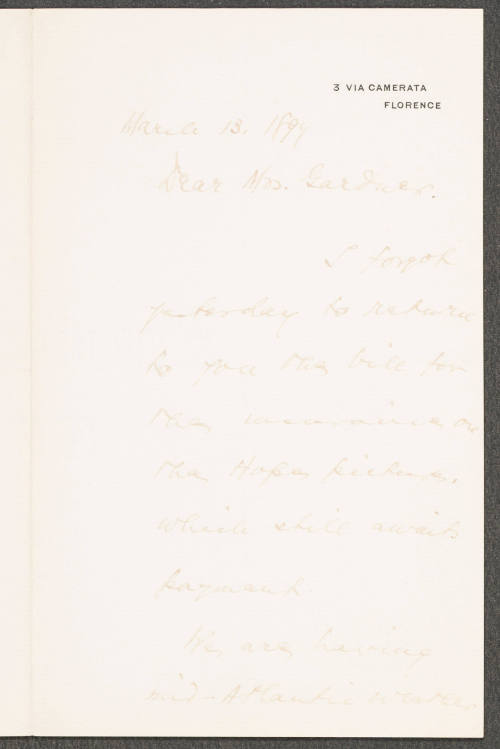 3 VIA CAMERATA
FLORENCE
March 13. 1899
Dear Mrs. Gardner.
I forgot
yesterday to return
to you the bill for
the insurance on
the Hope picture,
which still awaits
payment.
We are having
mid-Atlantic weather